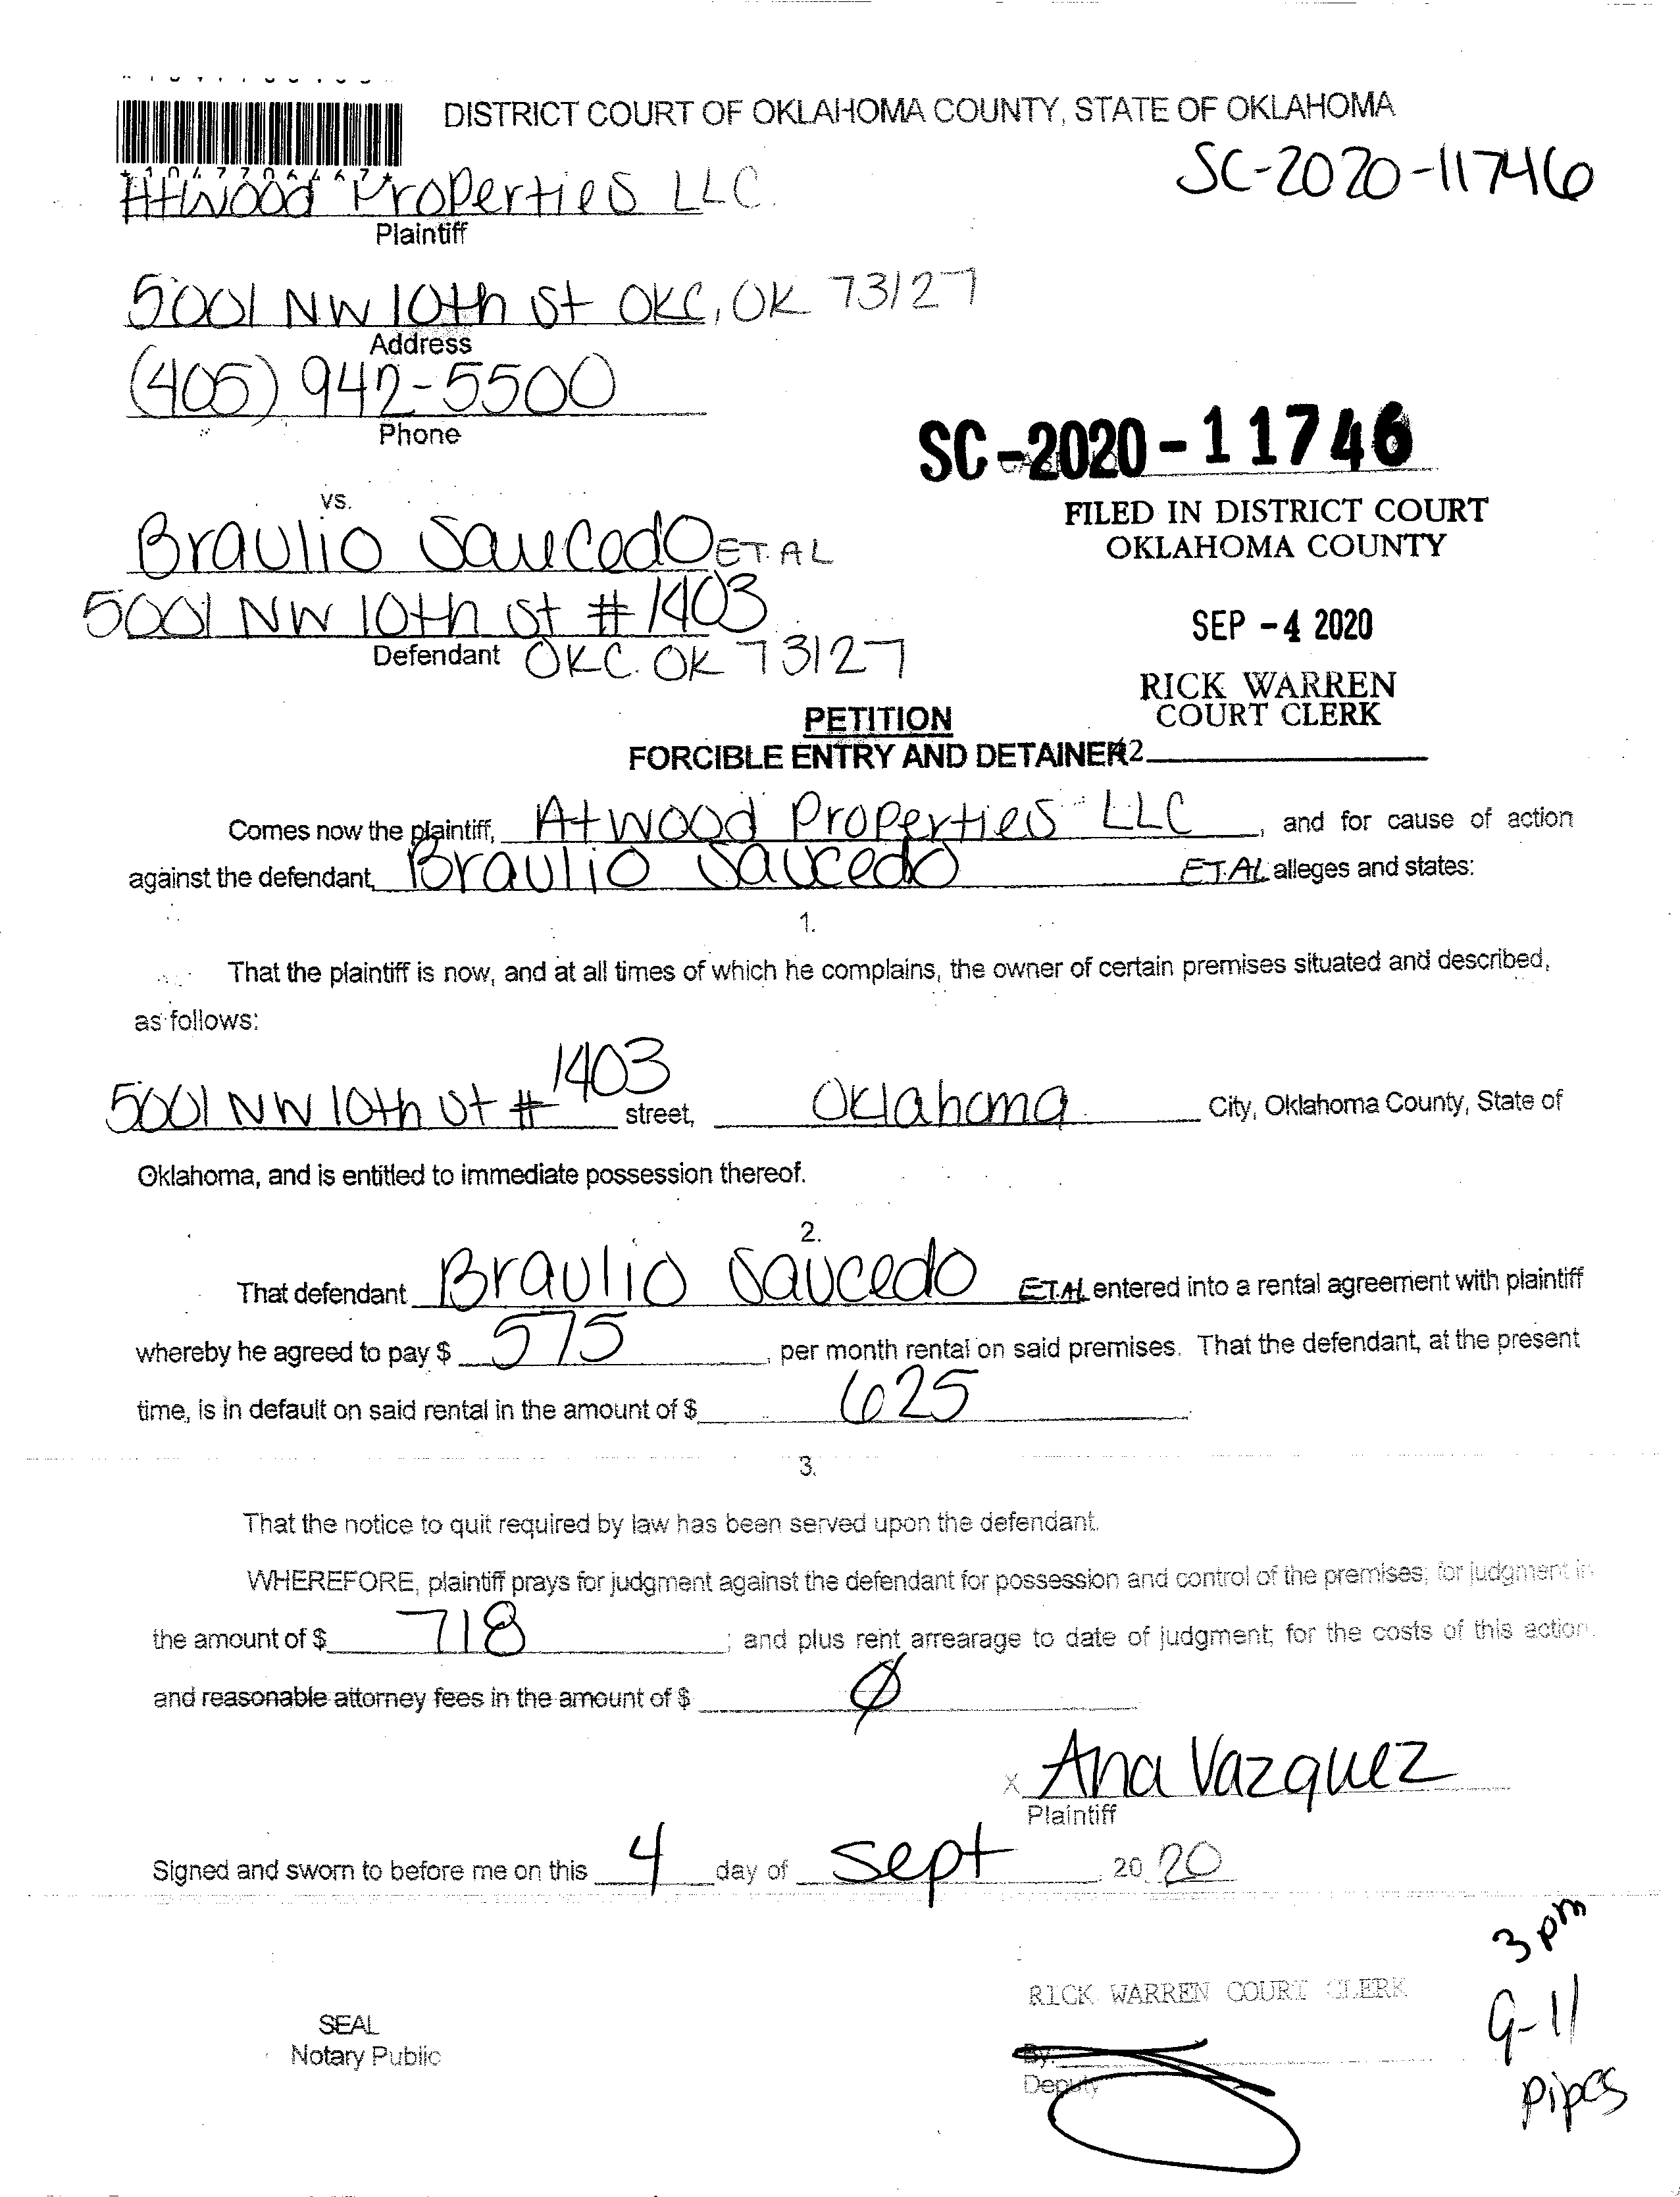 DISTRICT COURT OF OKLAHOMA COUNTY, STATE OF OKLAHOMA
SC-2020-11746
Atwood Properties LLC.
Plaintiff
5001 NW 10th St OKC, OK 73127
Address
(405) 942-5500
Phone
SC-2020-11746
vs.
FILED IN DISTRICT COURT
OKLAHOMA COUNTY
Braulio Saucedo ET. AL
5001 NW 10th St #1403
SEP -4 2020
Defendant OKC. OK 73127
RICK WARREN
COURT CLERK
PETITION
FORCIBLE ENTRY AND DETAINER
Comes now the plaintiff, Atwood Properties LLC, and for cause of action
against the defendant, Braulio Saucedo ET.AL alleges and states:
1.
That the plaintiff is now, and at all times of which he complains, the owner of certain premises situated and described,
as follows:
5001 NW 10th St # 1403 street, Oklahoma City, Oklahoma County, State of
Oklahoma, and is entitled to immediate possession thereof.
2.
That defendant Braulio Saucedo ET.AL entered into a rental agreement with plaintiff
whereby he agreed to pay $ 575, per month rental on said premises. That the defendant, at the present
time, is in default on said rental in the amount of $ 625
3.
That the notice to quit required by law has been served upon the defendant.
WHEREFORE, plaintiff prays for judgment against the defendant for possession and control of the premises; for judgment in
the amount of $ 718; and plus rent arrearage to date of judgment; for the costs of this action
and reasonable attorney fees in the amount of $ Ø
X Ana Vazquez
Plaintiff
Signed and sworn to before me on this 4 day of Sept 20 20
3 pm
RICK WARREN COURT CLERK
9-11
SEAL
Notary Public
By:
Deputy
Pipes